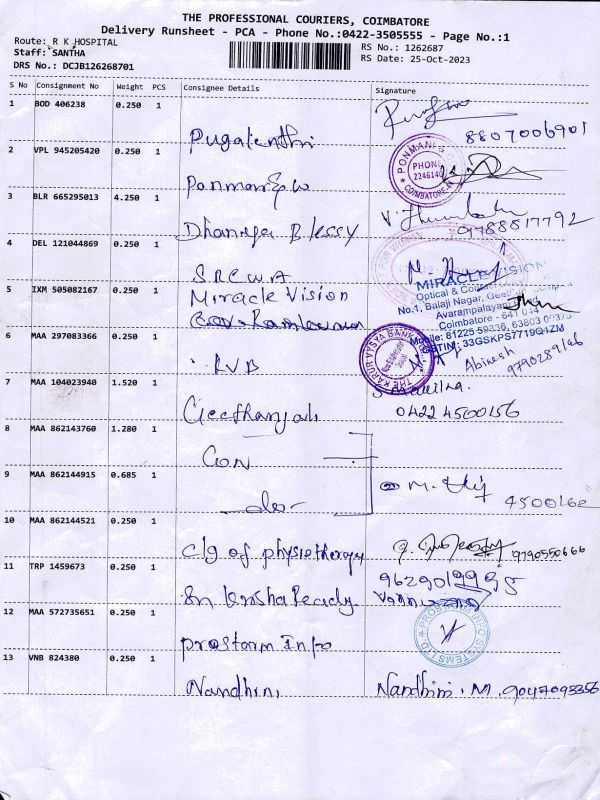 THE PROFESSIONAL COURIERS, COIMBATORE
Delivery Runsheet - PCA - Phone No.:0422-3505555 - Page No.:1
Route: R K HOSPITAL
Staff: SANTHA
DRS No.: DCJB126268701
RS No.: 1262687
RS Date: 25-Oct-2023
S No Consignment No Weight PCS Consignee Details Signature
1 BOD 406238 0.250 1
Pugalenthi 8807006901
2 VPL 945205420 0.250 1
PHONE 2246140
COIMBATORE
3 BLR 665295013 4.250 1
Dhaniya Blessy 9788817792
4 DEL 121044869 0.250 1
S.R.C.W.A
5 IXM 505082167 0.250 1
Miracle Vision
MIRACLE VISION
Optical &
No.1, Balaji Nagar,
Avarampalayam
Coimbatore - 641 044
GSTIM: 33GSKPS7719Q1ZM
6 MAA 297083366 0.250 1
KVB
THE KARUR VYSYA BANK
Abinesh
9790289146
7 MAA 104023940 1.520 1
Geethanjali
0422 4500156
8 MAA 862143760 1.280 1
Con
9 MAA 862144915 0.685 1
-do-
10 MAA 862144521 0.250 1
Clg of physiotherapy 9790550666
11 TRP 1459673 0.250 1
12 MAA 572735651 0.250 1
Prostorm Info
13 VNB 824380 0.250 1
Nandhini Nandhini. M. 9047093356